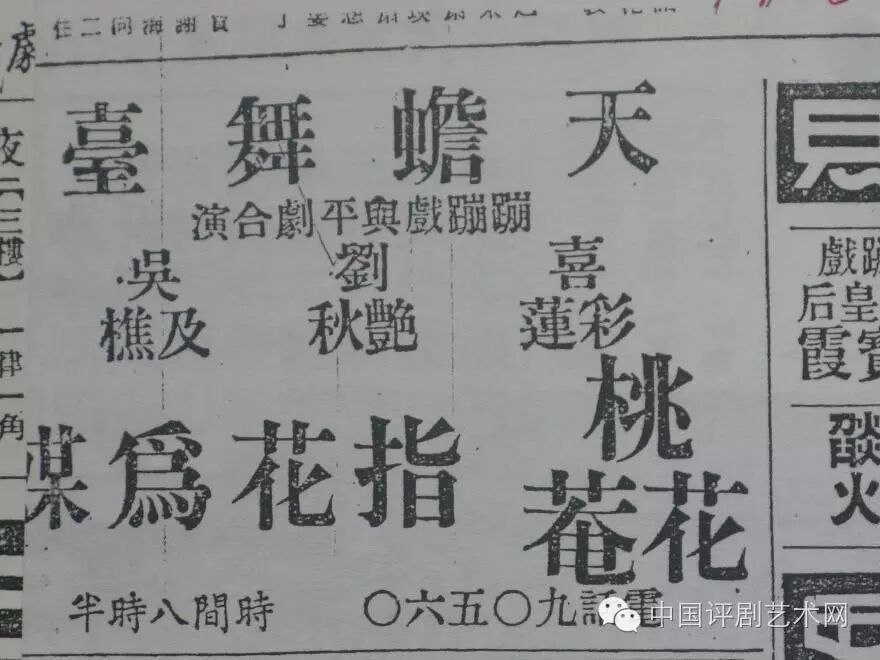 天蟾舞臺
蹦蹦戲與平劇合演
喜彩蓮
劉艶秋
吳及樵
桃花菴
指花爲媒
電話九〇五六〇
時間八時半
蹦戲
皇后
寶霞
夜【三樓】一律一角
中国评剧艺术网